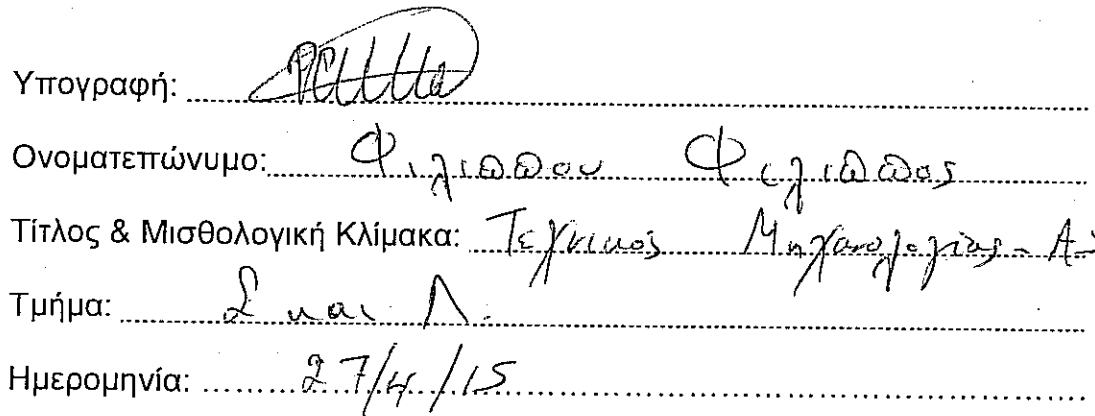 Υπογραφή:
Ονοματεπώνυμο: Φιλιππου Φιλιππος
Τίτλος & Μισθολογική Κλίμακα: Τεχνικός Μηχανολογίας - Α
Τμήμα: Σ και Λ.
Ημερομηνία: 27/4/15